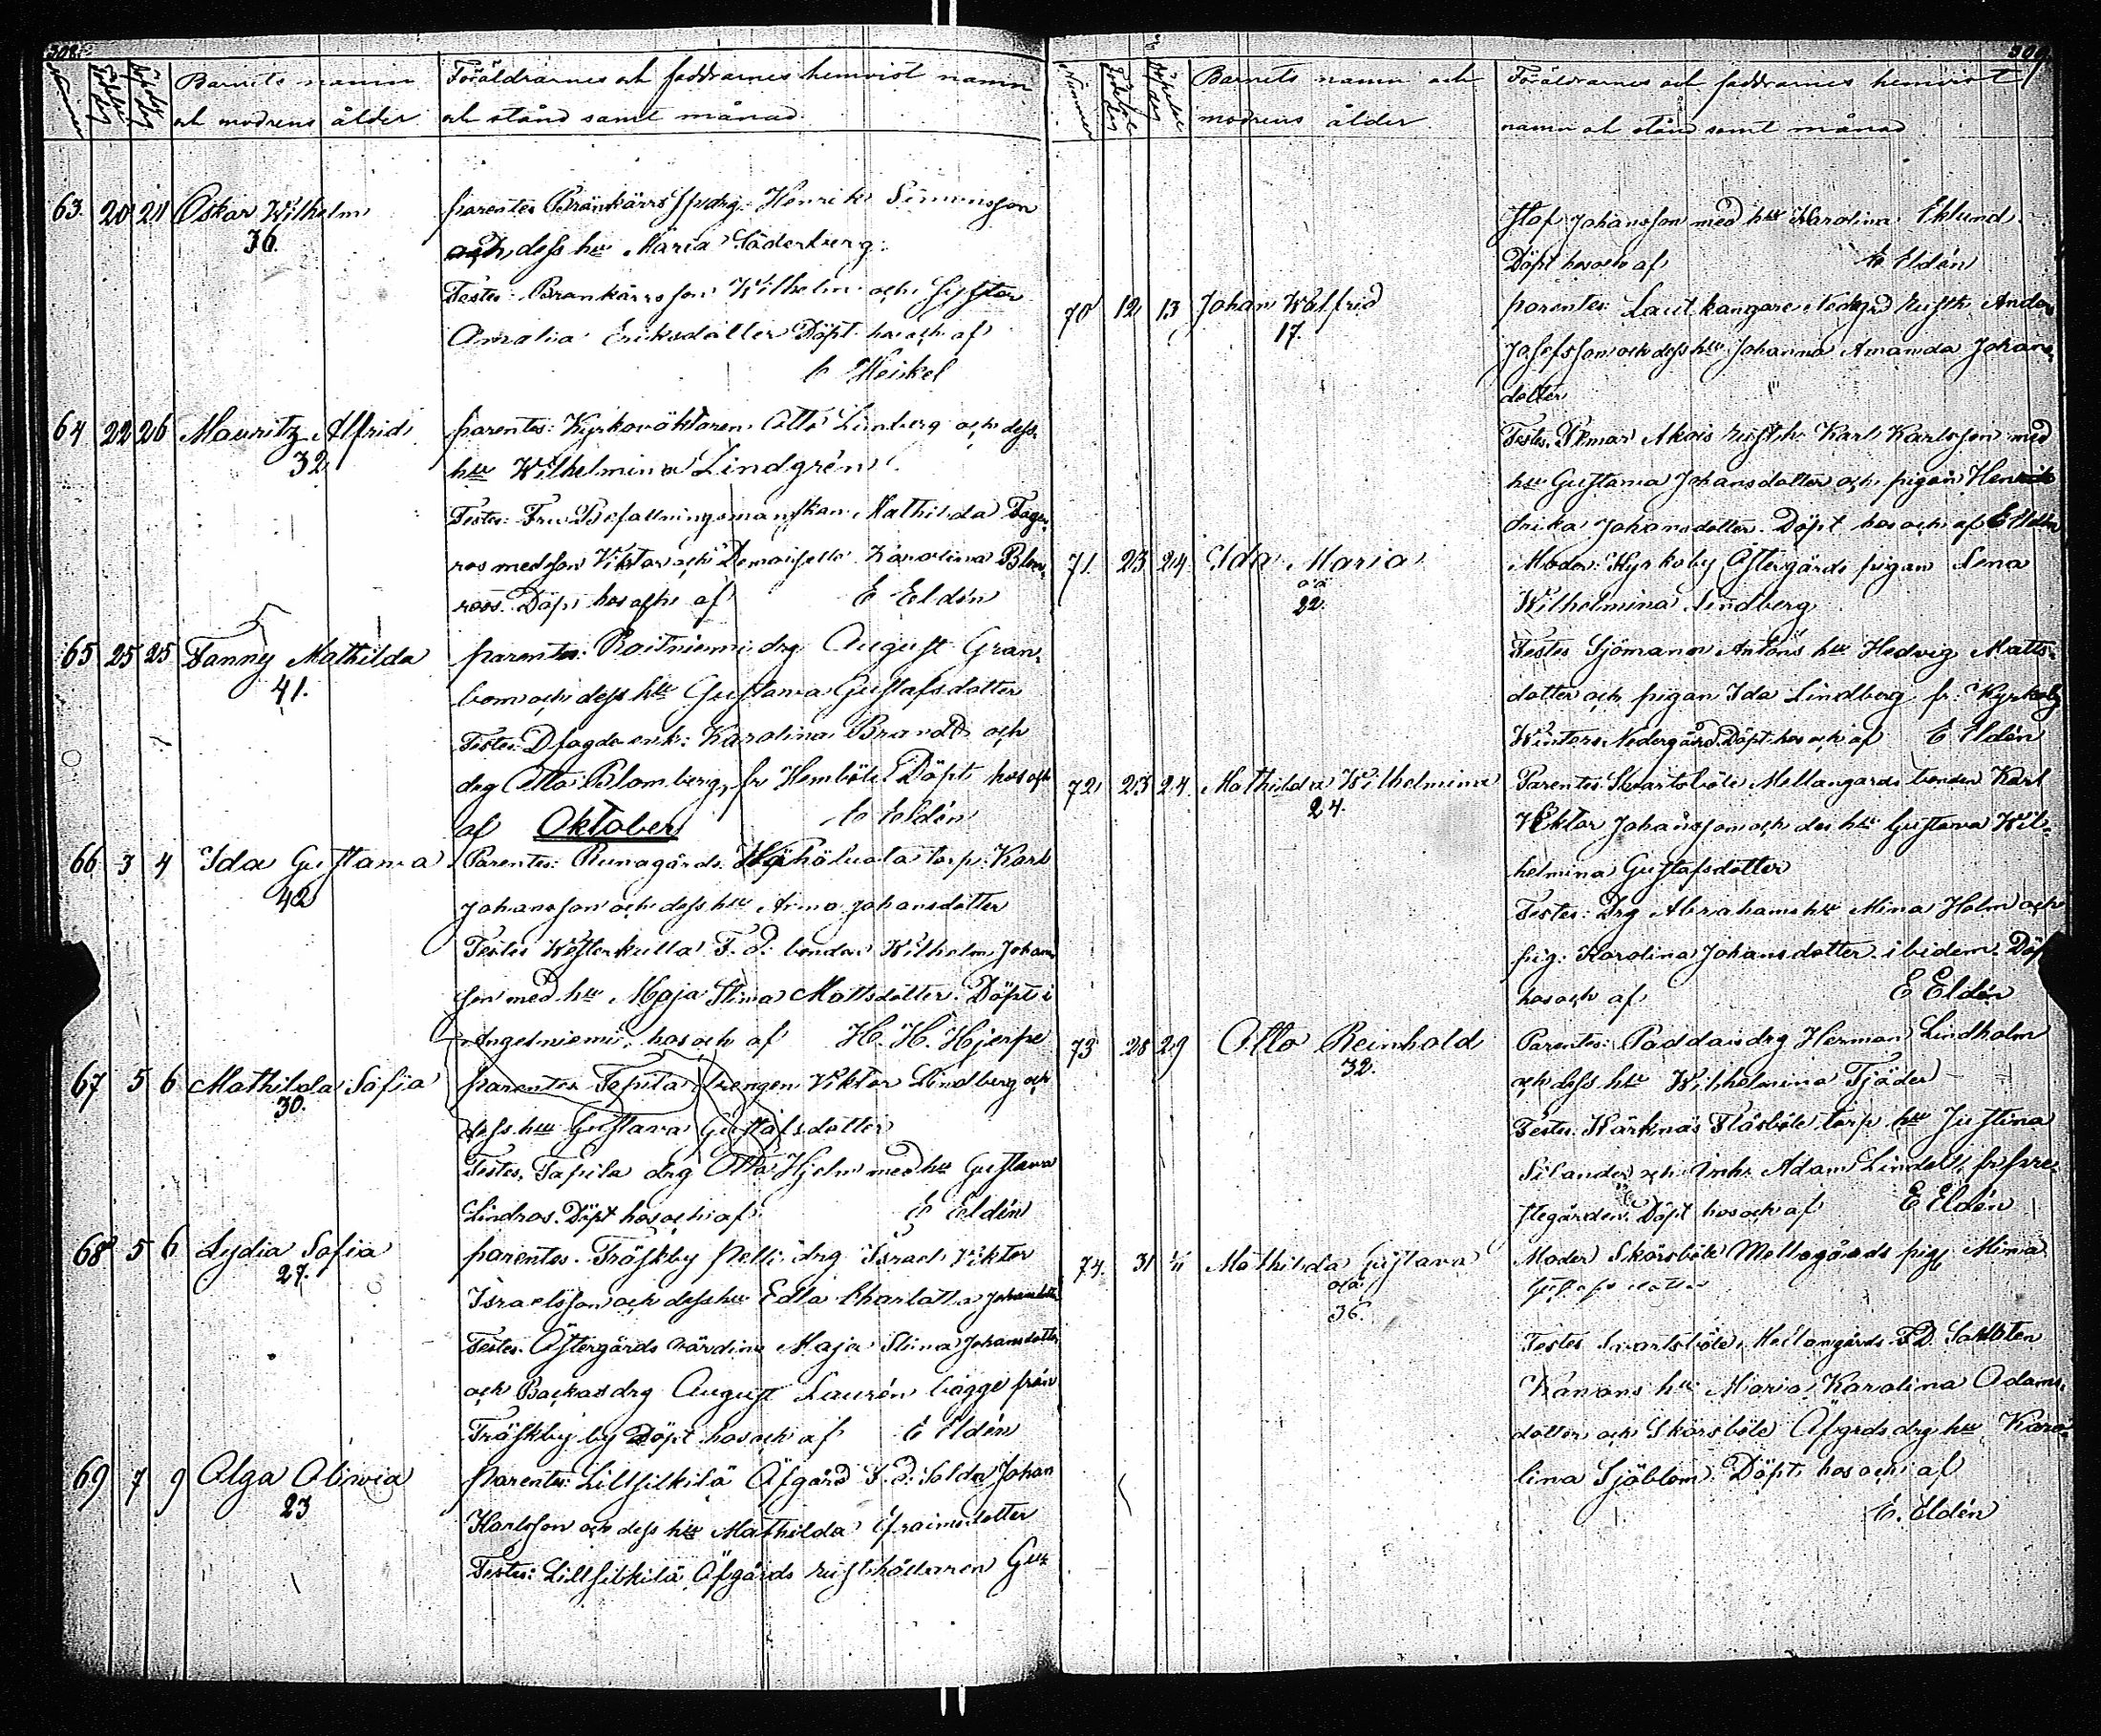 308.
Nummer
Födelse dag
Döpelse dag
Barnets namn
och modrens ålder
Föräldrarnes och faddrarnes hemvist namn
och stånd samt månad.
63. 20 21 Oskar Wilhelm
36.
parentes Brankärrs spdrg. Henrik Simonsson
och dess hu Maria Söderberg.
Testes: Brankärrs son Wilhelm och syster
Amalia Eriksdotter Döpt hos och af
C Heikel
64 22 26 Mauritz Alfrid
32
parentes: Kyrkovöktaren Otto Linberg och dess
hu Wilhelmina Lindgrén
Testes: Fru Befallningsmanskan Mathilda Fager-
ros med son Viktor och Demoiselle Karolina Blom-
roos. Döpt hos och af E Eldén
65 25 25 Fanny Mathilda
41.
parentes: Roitniemi drg August Gran-
bom och dess hu Gustava Gustafsdotter
Testes: Dfogde enk: Karolina Brandt och
drg Otto Blomberg fr Hemböle Döpt hos och
af Oktober E Eldén
66 3 4 Ida Gustava
42
Parentes: Runagårds torp. Karl
Johansson och dess hu Anna Johansdotter
Testes Westerkulla F. d. bonden Wilhelm Johans
son med hu Maja Stina Mattsdotter. Döpt i
Angelniemi, hos och af H. H. Hjerpe
67 5 6 Mathilda Sofia
30.
parentes Tapila drengen Viktor Lindberg och
dess hu Gustava Gustafsdotter
Testes, Tapila drg Otto Hjelm med hu Gustava
Lindros. Döpt hos och af E Eldén
68 5 6 Lydia Sofia
27.
parentes. Träskby Pelli drg Israel Viktor
Israelsson och dess hu Edla Charlotta Johansdotter
Testes. Östergårds värdina Maja Stina Johansdotter
och Backas drg August Laurén bägge från
Träskby by Döpt hos och af E Eldén
69 7 9 Olga Olivia
23
Parentes: Lillsilkilä Öfgård F. d. Soldn Johan
Karlsson och dess hu Mathilda Efraimsdotter
Testes: Lillsilkilä Öfgårds rusthållaren Gu-
309.
Nummer
Födelse dag
Döpelse dag
Barnets namn och
modrens ålder
Föräldrarnes och faddrarnes hemvist
namn och stånd samt månad
staf Johansson med hu Karolina Eklund.
Döpt hos och af E Eldén
70 12 13 Johan Walfrid
17.
parentes: Lautkangare Nedgrd rusth. Anders
Josefsson och dess hu Johanna Amanda Johans-
dotter
Testes. Pemar Akois rusth. Karl Karlsson med
hu Gustava Johansdotter och pigan Hen
drika Johansdotter. Döpt hos och af E Eldén
71. 23 24 Ida Maria
oä
22.
Moder: Kyrkoby Östergårds pigan Lena
Wilhelmina Lindberg
Testes Sjömann Antons hu Hedvig Matts-
dotter och pigan Ida Lindberg fr. Kyrkoby
Winters Nedergård Döpt hos och af E Eldén
72. 23 24. Mathilda Wilhelmina
24.
Parentes: Svartsböle Mellangårds bonden Karl
Viktor Johansson och des hu Gustava Wil-
helmina Gustafsdotter
Testes: Drg Abrahams hu Mina Holm och
pig. Karolina Johansdotter ibidem. Döpt
hos och af E Eldén
73 28 29 Otto Reinhold
32.
Parentes: Paddais drg Herman Lindholm
och dess hu Wilhelmina Tjäder
Testes. Kärknäs Flåsböle torp hu Justina
Silander och Inh. Adam Lindell fr pre-
stegården Döpt hos och af E Eldén
74. 31 1/11 Mathilda Gustava
oä
36.
Moder Skärsböle Mellagårds pig Mina
Gustafsdotter
Testes Svartsböle Mellangårds F.D. Soldaten
hu Maria Karolina Adams-
dotter och Skärsböle Öfgrds drg hu Karo-
lina Sjöblom. Döpt hos och af
E. Eldén